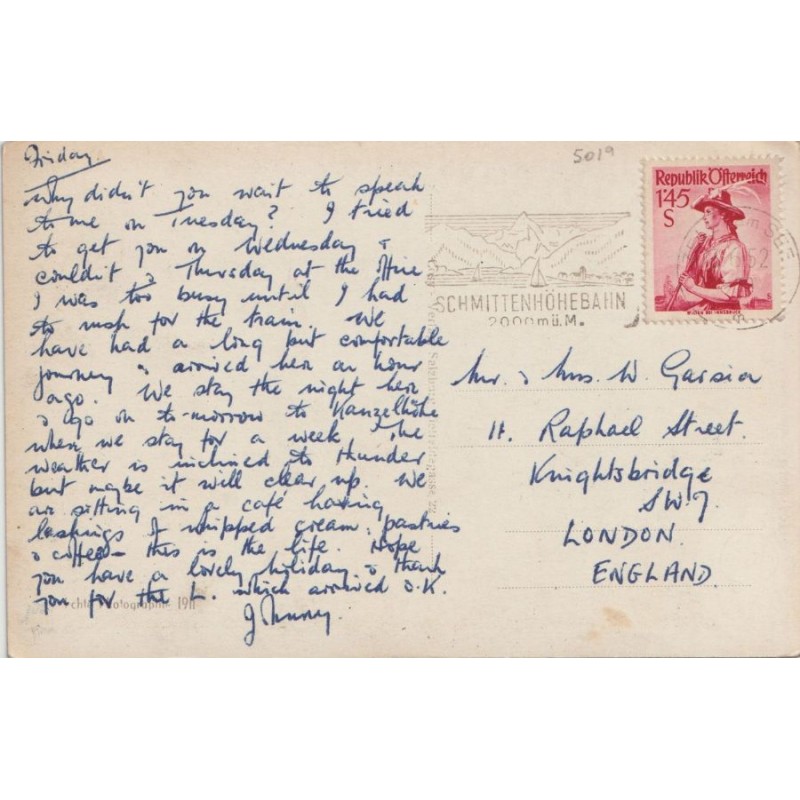 5019
Friday
Why didn't you wait to speak
to me on Tuesday? I tried
to get you on Wednesday &
couldn't & Thursday at the office
I was too busy until I had
to rush for the train. We
have had a long but comfortable
journey & arrived here an hour
ago. We stay the night here
& go on to-morrow to Kanzelhöhe
where we stay for a week. The
weather is inclined to thunder
but maybe it will clear up. We
are sitting in a café having
lashings of whipped cream, pastries
& coffee - this is the life. Hope
you have a lovely holiday & thank
you for the L. which arrived O.K.
Republik Österreich
1'45
S
SCHMITTENHÖHEBAHN
2000 m ü. M.
Mr. & Mrs. W. Garsia
Raphael Street.
Knightsbridge
SW7.
LONDON.
ENGLAND.